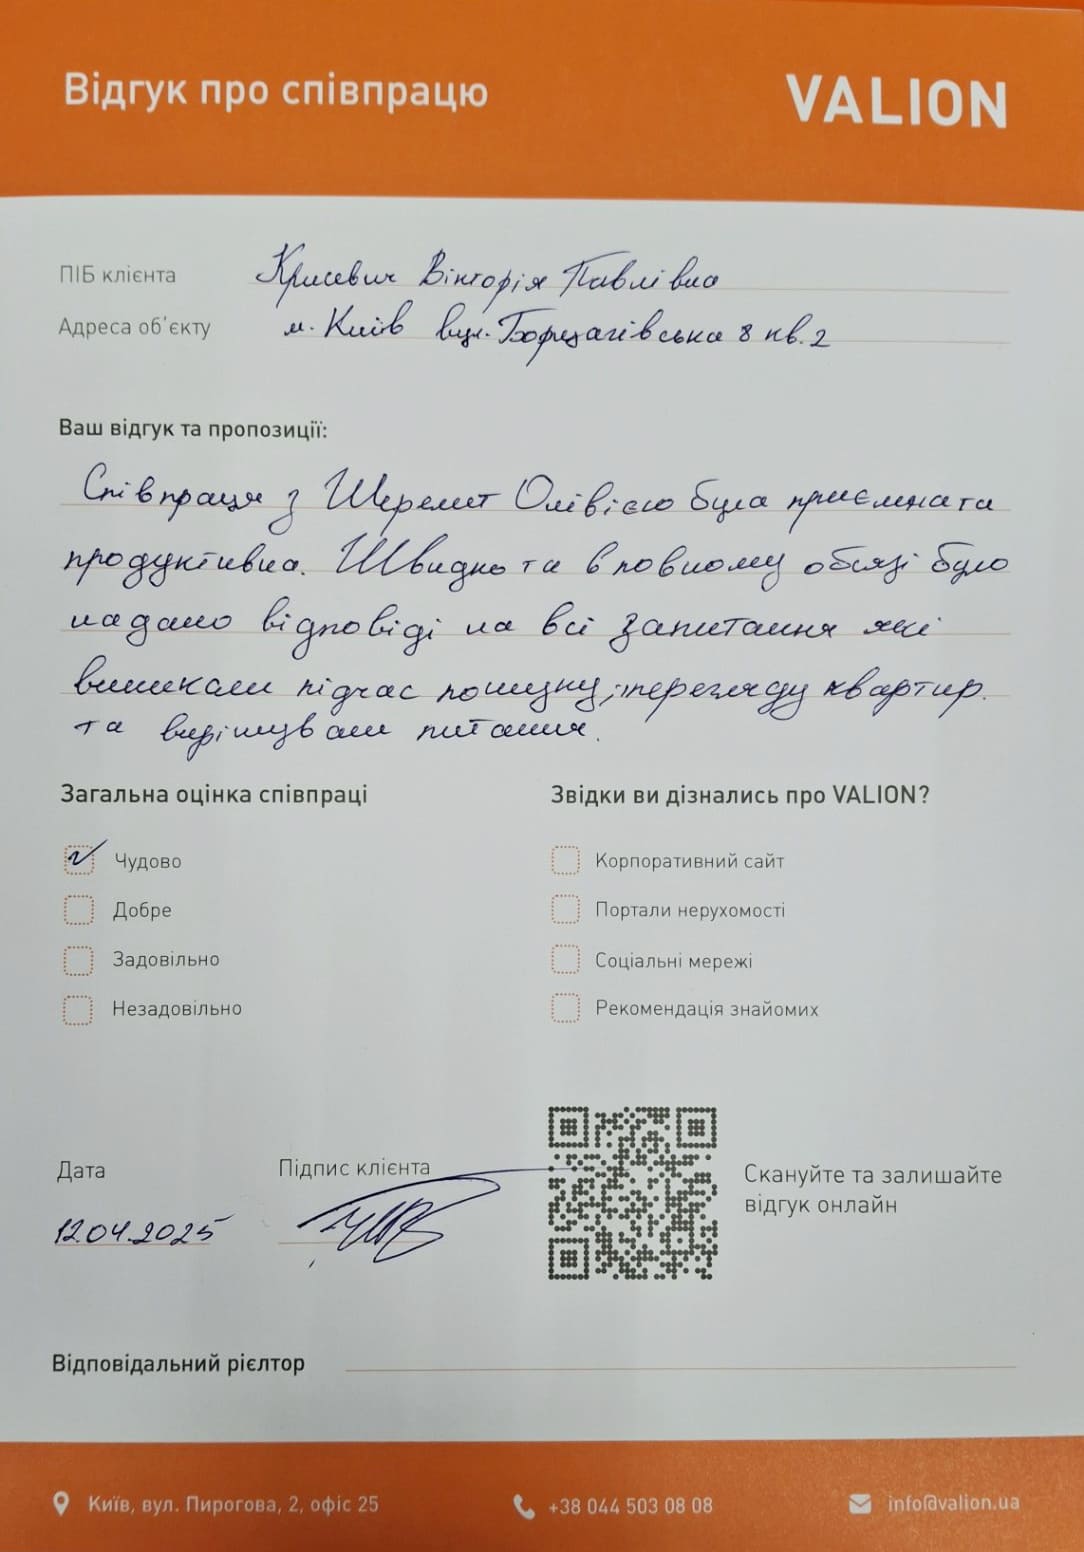 Відгук про співпрацю
VALION
ПІБ клієнта Крисевич Вікторія Павлівна
Адреса об'єкту м. Київ вул. Борщагівська 8 кв. 2
Ваш відгук та пропозиції:
Співпраця з Шеремет Олівією була приємна та
продуктивна. Швидко та в повному обсязі було
надано відповіді на всі запитання які
виникали підчас пошуку, перегляду квартир.
та вирішували питання.
Загальна оцінка співпраці
Чудово
Добре
Задовільно
Незадовільно
Звідки ви дізнались про VALION?
Корпоративний сайт
Портали нерухомості
Соціальні мережі
Рекомендація знайомих
Дата
12.04.2025
Підпис клієнта
Скануйте та залишайте
відгук онлайн
Відповідальний рієлтор
Київ, вул. Пирогова, 2, офіс 25
+38 044 503 08 08
info@valion.ua